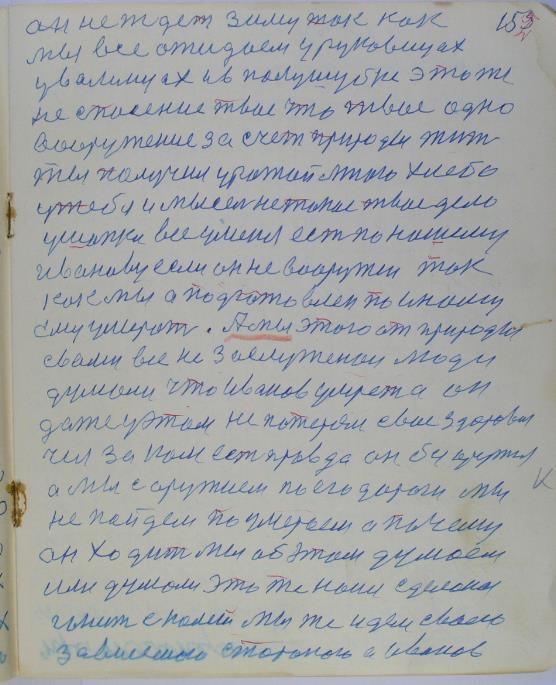 он не ждет зиму так как 153
мы все ожидаем у руковицах
у валинцах и в полушубке это же
не спосение твое что твое одно
вооружение за счет природы жит
ты получил урожай много хлеба
у тебя и мысел не такое твое дело
у шапки все уменя ест по нашему
Иванову если он не вооружен так
как мы а подготовлен по иному
ему умерат. А мы этого от природы
свами все не заслуженои люди
думоли что Иванов умрет а он
даже у этом не потерял свое здоровья
чел за ном ест правда он бы
а мы с оружием по его дороги мы
не пойдем поумераем а почему
он ходит мы об этом думаем
или думоли это же нами сделоно
гоние с полей мы же идем своею
зависемою стороною а Иванов